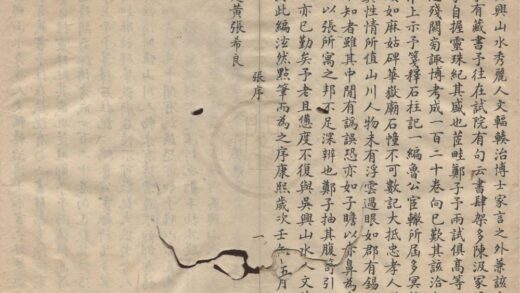 興山水秀麗人文輻輳治博士家言之外兼該
有藏書予往在試院有句云書肆架多陳汲冢
子自握靈珠紀其盛也茞畦鄭子予兩試俱高等
殘闕蒐諏博考成一百二十卷向已歎其該洽
上示予箋釋石柱記一編魯公宦轍所屆多冥
如麻姑碑華嶽廟石幢不可數記大抵忠孝人
性情所值山川人物未有浮雲過眼如郡有錫
知者雖其中間有譌誤恐亦如子瞻以亦鼻為
以張所寓之邦不足深辨也鄭子抽其腹笥引
亦已勤矣予老且憊度不復與吳興山水人文
此編泫然點筆而為之序康熙歲次壬午五月
黃張希良
張序
一